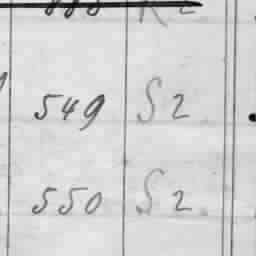 549 S 2
550 S 2